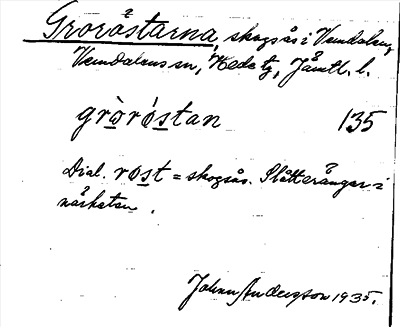 Groråstarna, skogsås i Vemdalen,
Vemdalens sn, Hede tg, Jämtl. l.
gròró̱s̱tan 135
Dial. ro̱s̱t = skogsås. Slåtterängar i
närheten.
Johan Andersson 1935.